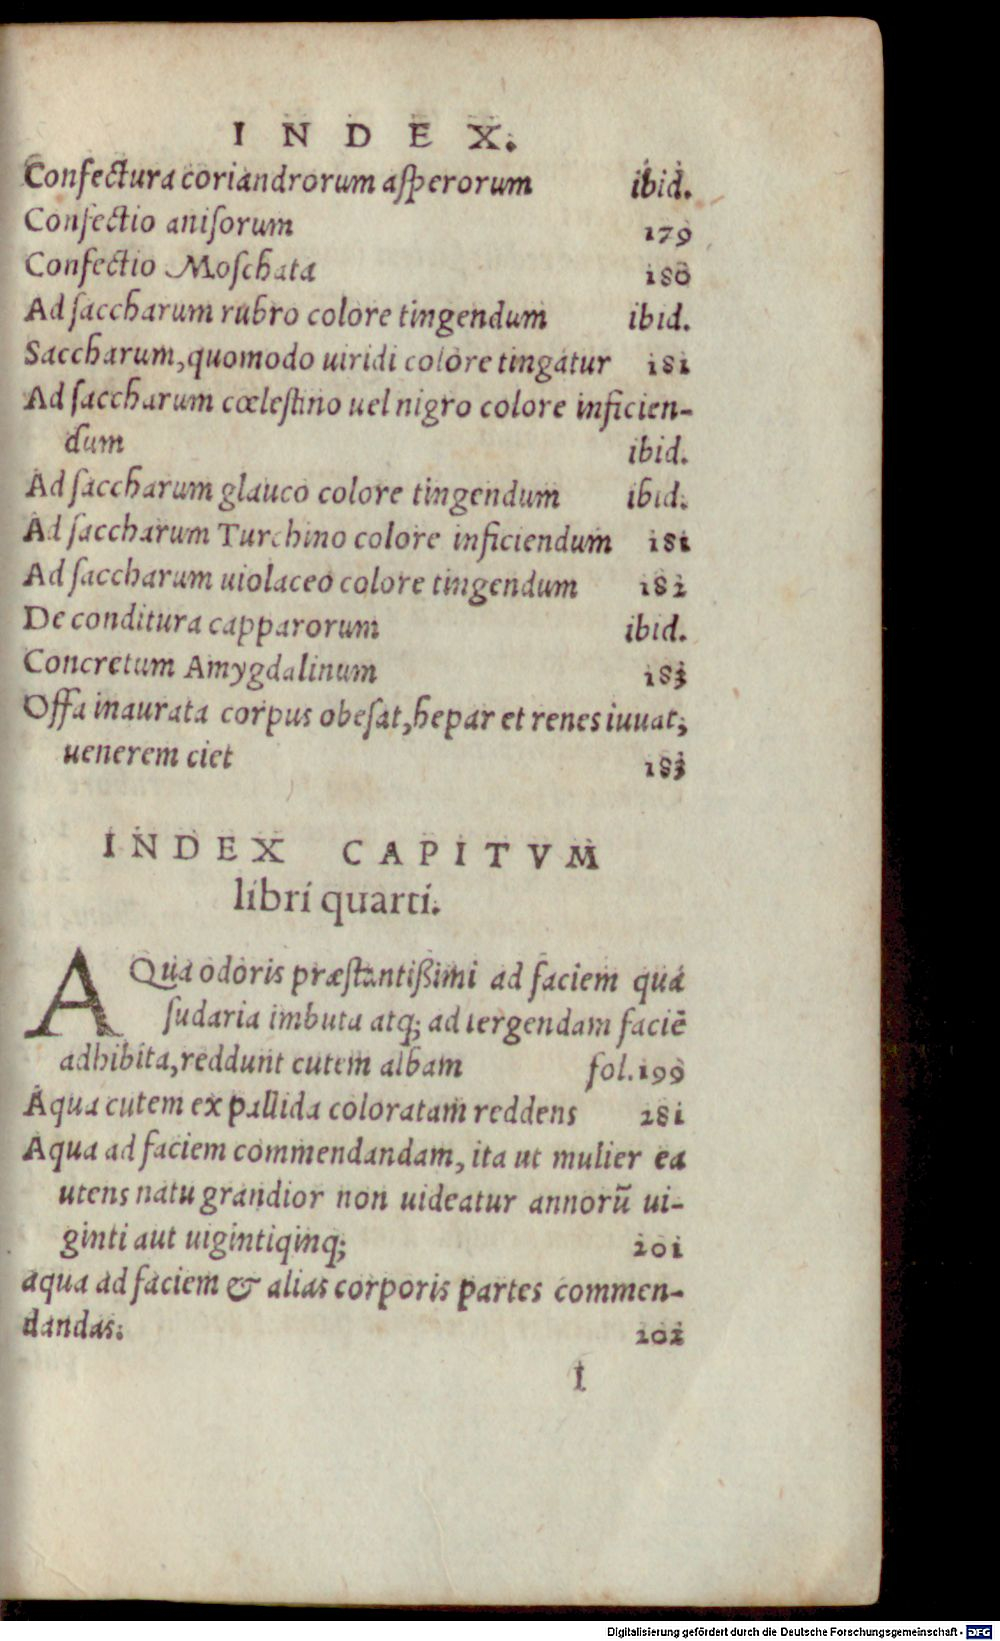 INDEX.
Confectura coriandrorum aſperorum ibid.
Confectio aniſorum 179
Confectio Moſchata 180
Ad ſaccharum rubro colore tingendum ibid.
Saccharum, quomodo uiridi colore tingatur 181
Ad ſaccharum cœleſtino uel nigro colore inficien-
dum ibid.
Ad ſaccharum glauco colore tingendum ibid.
Ad ſaccharum Turchino colore inficiendum 181
Ad ſaccharum uiolaceo colore tingendum 182
De conditura capparorum ibid.
Concretum Amygdalinum 183
Offa inaurata corpus obeſat, hepar et renes iuuat,
uenerem ciet 183
INDEX CAPITVM
libri quarti.
AQua odoris præſtantißimi ad faciem quá
ſudaria imbuta atq; ad tergendam faciē
adhibita, reddunt cutem albam fol. 199
Aqua cutem ex pallida coloratam reddens 281
Aqua ad faciem commendandam, ita ut mulier ea
utens natu grandior non uideatur annorū ui-
ginti aut uigintiqinq; 201
aqua ad faciem & alias corporis partes commen-
dandas. 202
I
Digitalisierung gefördert durch die Deutsche Forschungsgemeinschaft - DFG